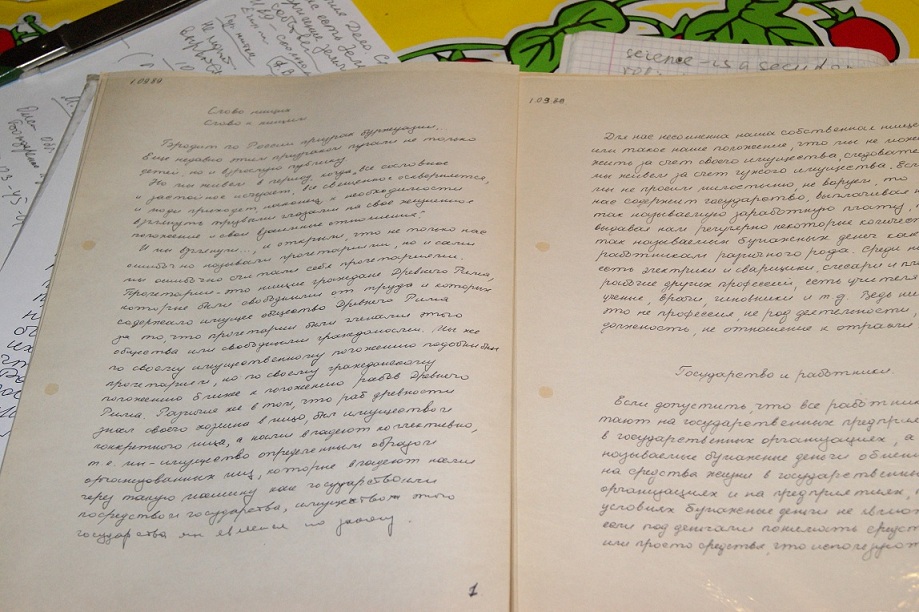 1.09.80
Слово нищим
Слово к нищим
Бродит по России призрак буржуазии...
Еще недавно этим призраком пугали не только
детей, но и взрослую публику.
Но мы живем в период когда „все сословное
и застойное исчезает, все священное оскверняется,
и люди приходят наконец к необходимости
взглянуть трезвыми глазами на свое жизненное
положение и свои взаимные отношения".
И мы взглянули..., и открыли, что не только нас
ошибочно называли пролетариями, но и сами
мы ошибочно считали себя пролетариями.
Пролетарии - это нищие граждане Древнего Рима,
которые были свободными от труда и которых
содержало имущее общество Древнего Рима
за то, что пролетарии были членами этого
общества или свободными гражданами. Мы же
по своему имущественному положению подобны
пролетариям, но по своему гражданскому
положению ближе к положению рабов Древнего
Рима. Различие же в том, что раб древности
знал своего хозяина в лицо, был имуществом
конкретного лица, а нами владеют коллективно,
т.е. мы - имущество определенным образом
организованных лиц, которые владеют нами
через такую машину как государство или
посредством государства, имуществом этого
государства мы являемся по закону.
1
1.09.80
Для нас несомненна наша собственная нище
или такое наше положение, что мы не мож
жить за счет своего имущества, следовате
мы живем за счет чужого имущества. Есл
мы не просим милостыню, не воруем, то
нас содержит государство, выплачивая н
так называемую заработную плату,
выдавая нам регулярно некоторые количест
так называемых бумажных денег как
работникам разного рода. Среди на
есть электрики и сварщики, слесари и пл
рабочие других профессий, есть учителя
ученые, врачи, чиновники и т.д. Ведь ни
это не профессия, не род деятельности,
должность, не отношение к отрасли
Государство и работники.
Если допустить, что все работник
тают на государственных предприя
в государственных организациях, а
называемые бумажные деньги обмени
на средства жизни в государственны
организациях и на предприятиях,
условиях бумажные деньги не являют
если под деньгами понимать средст
или просто средства, что использует
science - is a secular